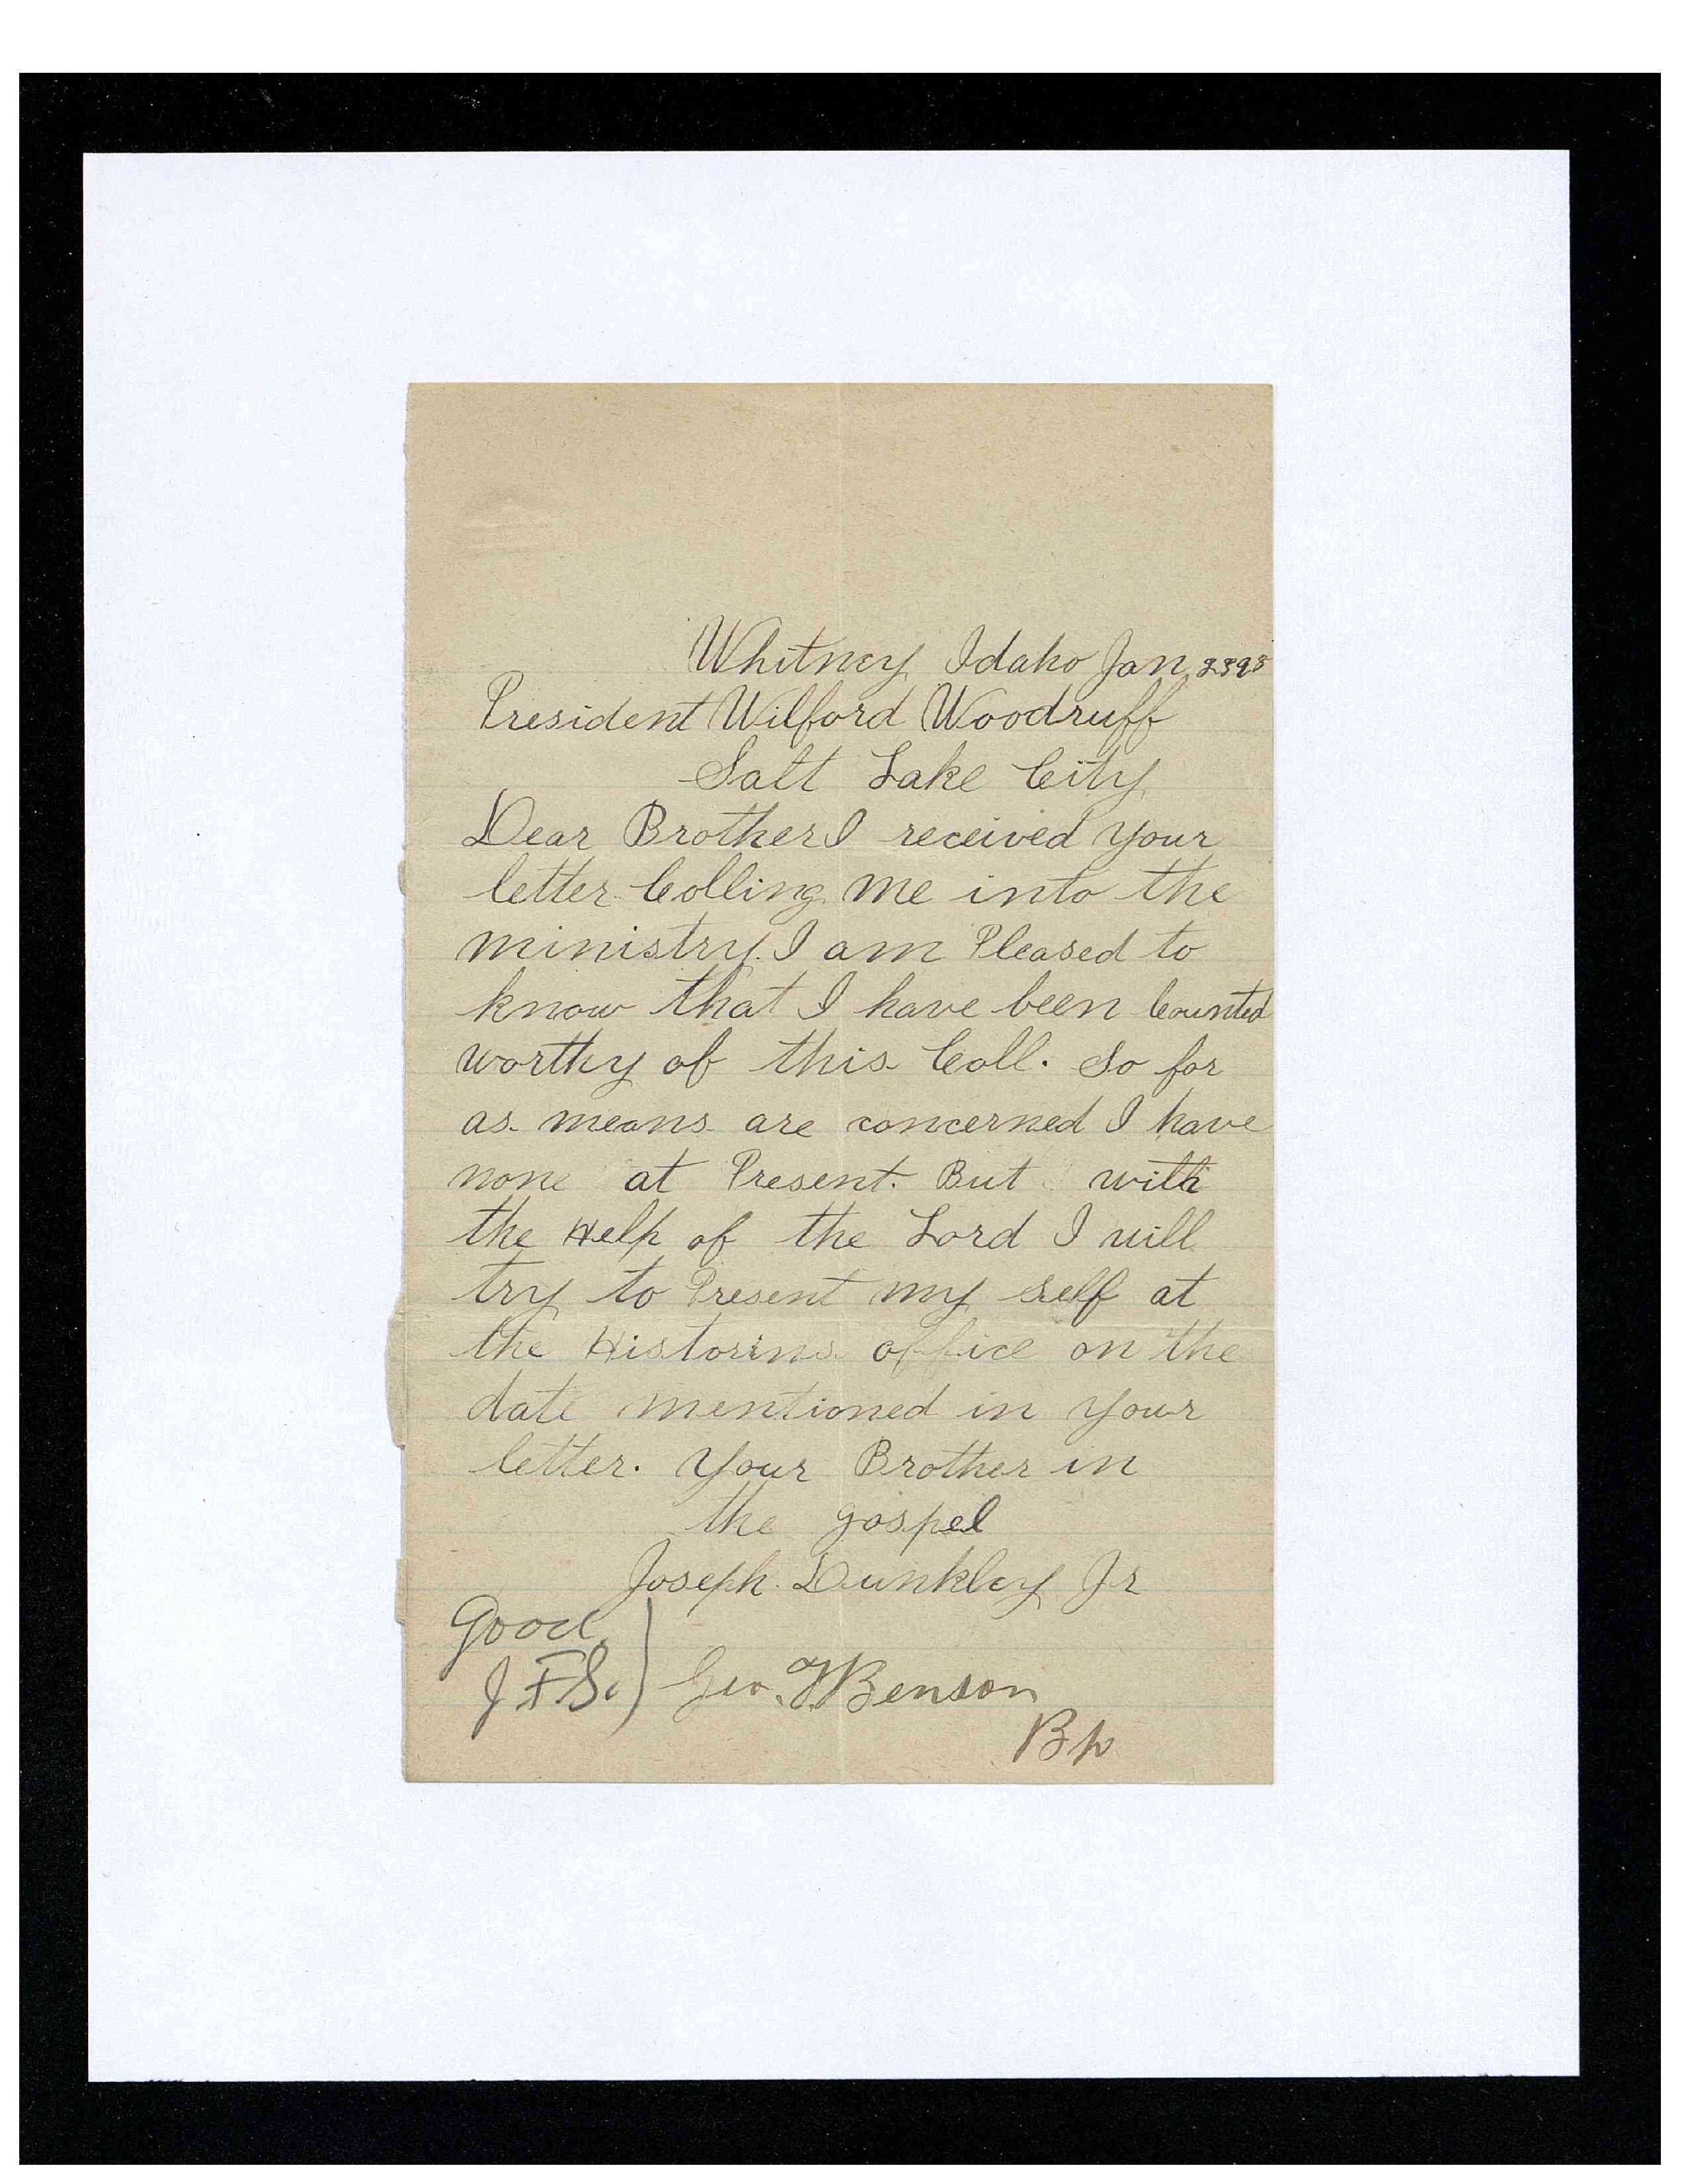 Whitney Idaho Jan 23 98
President Wilford Woodruff
Salt Lake City
Dear Brother I received your
letter Colling me into the
ministry. I am Pleased to
know that I have been Counted
worthy of this Coll. So for
as means are concerned I have
none at Present. But with
the Help of the Lord I will
try to Present my self at
the Historins office on the
date mentioned in your
letter. Your Brother in
the gospel
Joseph Dunkley Jr
Good
J. F. S.) Geo. T Benson
Bp